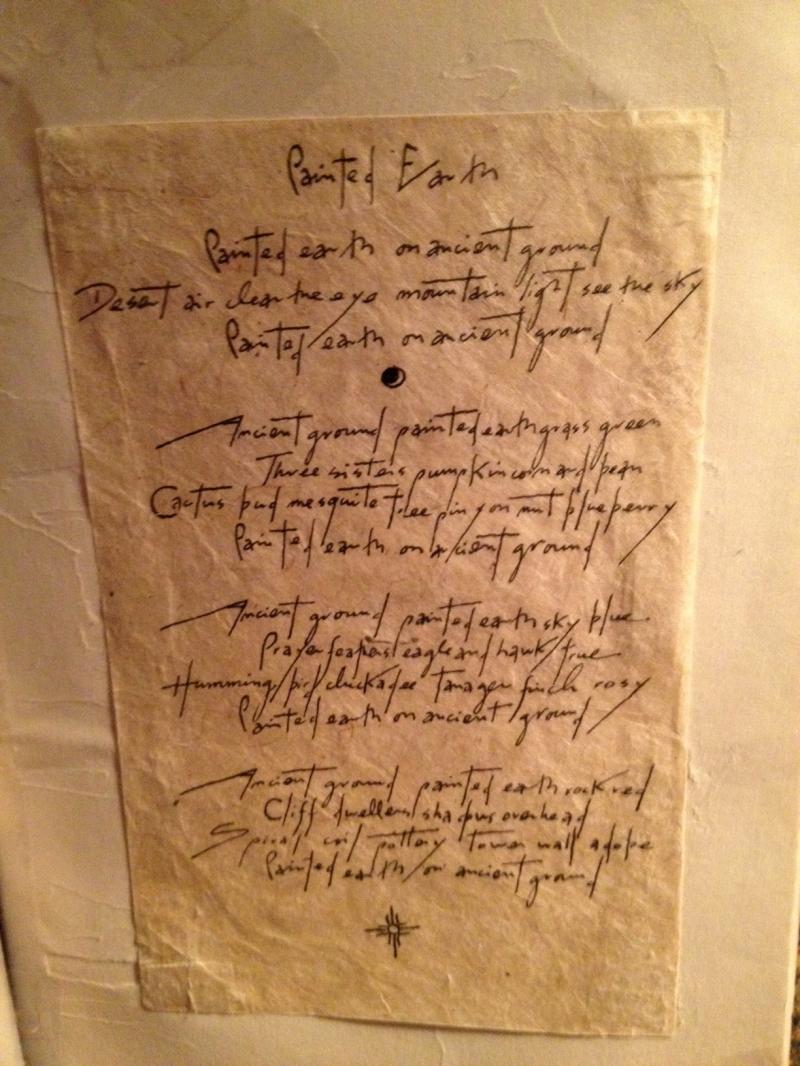 Painted Earth
Painted earth on ancient ground
Desert air clear the eye mountain light see the sky
Painted earth on ancient ground
Ancient ground painted earth grass green
Three sisters pumpkin corn and bean
Cactus bud mesquite tree pinyon nut blueberry
Painted earth on ancient ground
Ancient ground painted earth sky blue
Prayer feathers eagle and hawk true
Humming bird chickadee Tanager finch rosy
Painted earth on ancient ground
Ancient ground painted earth rock red
Cliff dwellers shadows overhead
Spiral coil pottery tower wall adobe
Painted earth on ancient ground